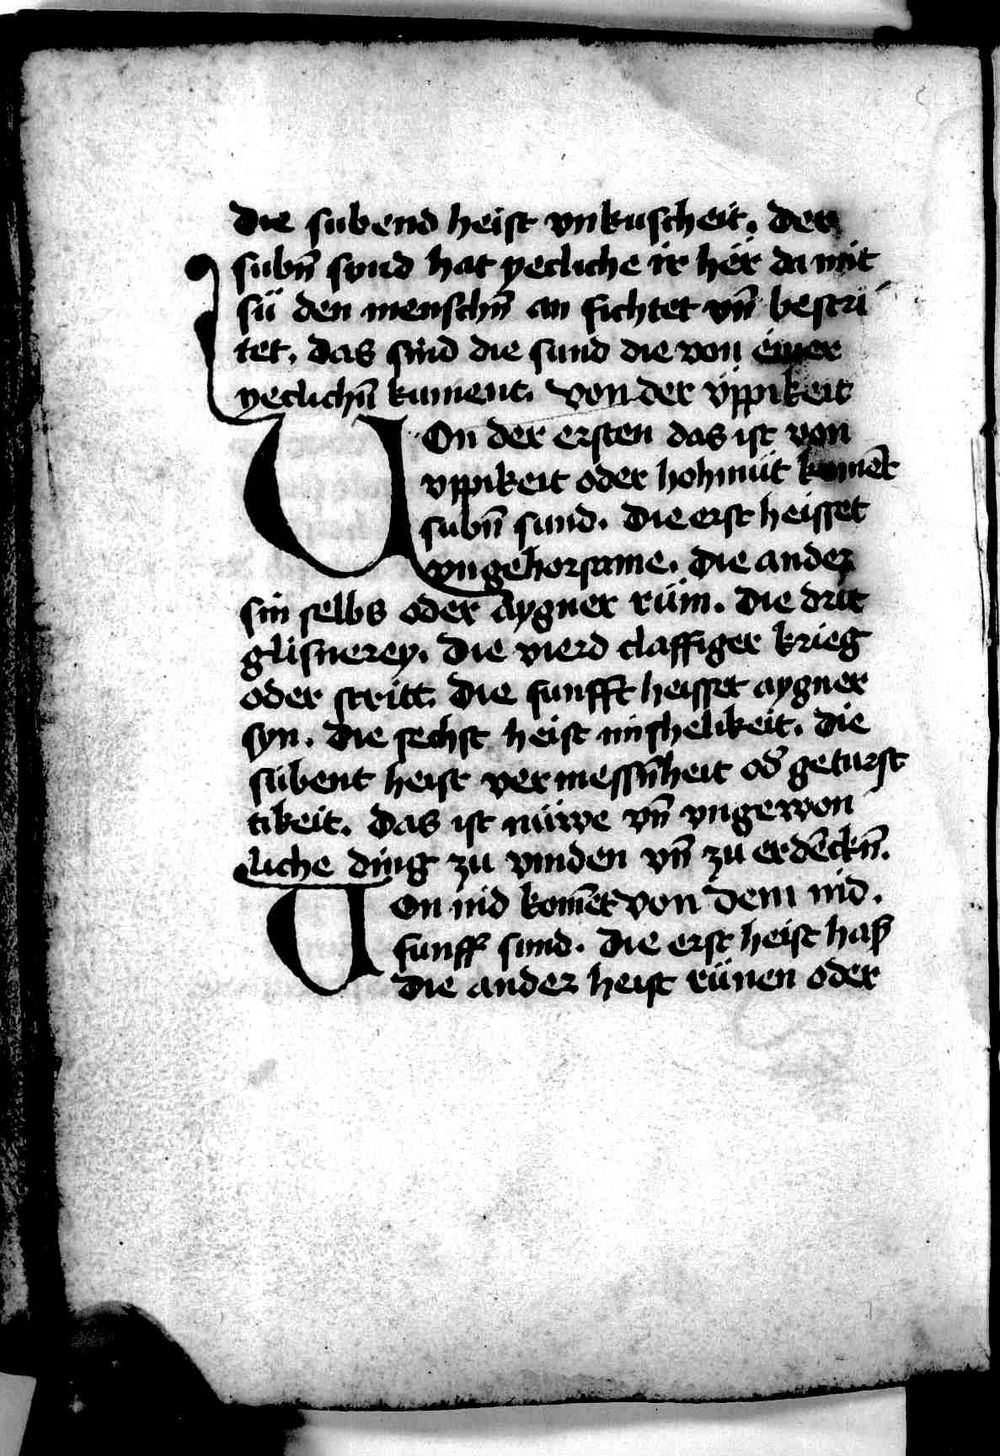 die subend heist vnkuscheit. der
subn̄ synd hat yecliche ir hër da mit
sü den menschn̄ an fichtet vn̄ bestri
tet. das sind die sund die von einer
yeclichn̄ kument. von der üppikeit
Uon der ersten das ist von
vppikeit oder hohmüt kumēt
subn̄ sund. die erst heisset
vngehorsame. die ander
sin selbs oder aygner rüm. die drit
glisnerey. die vierd claffiger krieg
oder stritt. die funfft heisset aygner
syn. die sechst heist mishelikeit. die
sübent heist vermessn̄heit od̄ geturst
tikeit. das ist nüwe vn̄ vngewon
liche ding zu vinden vn̄ zu erdēckn̄.
Uon nid komēt von dem nid.
funff sund. die erst heist haß
die ander heist rünen oder